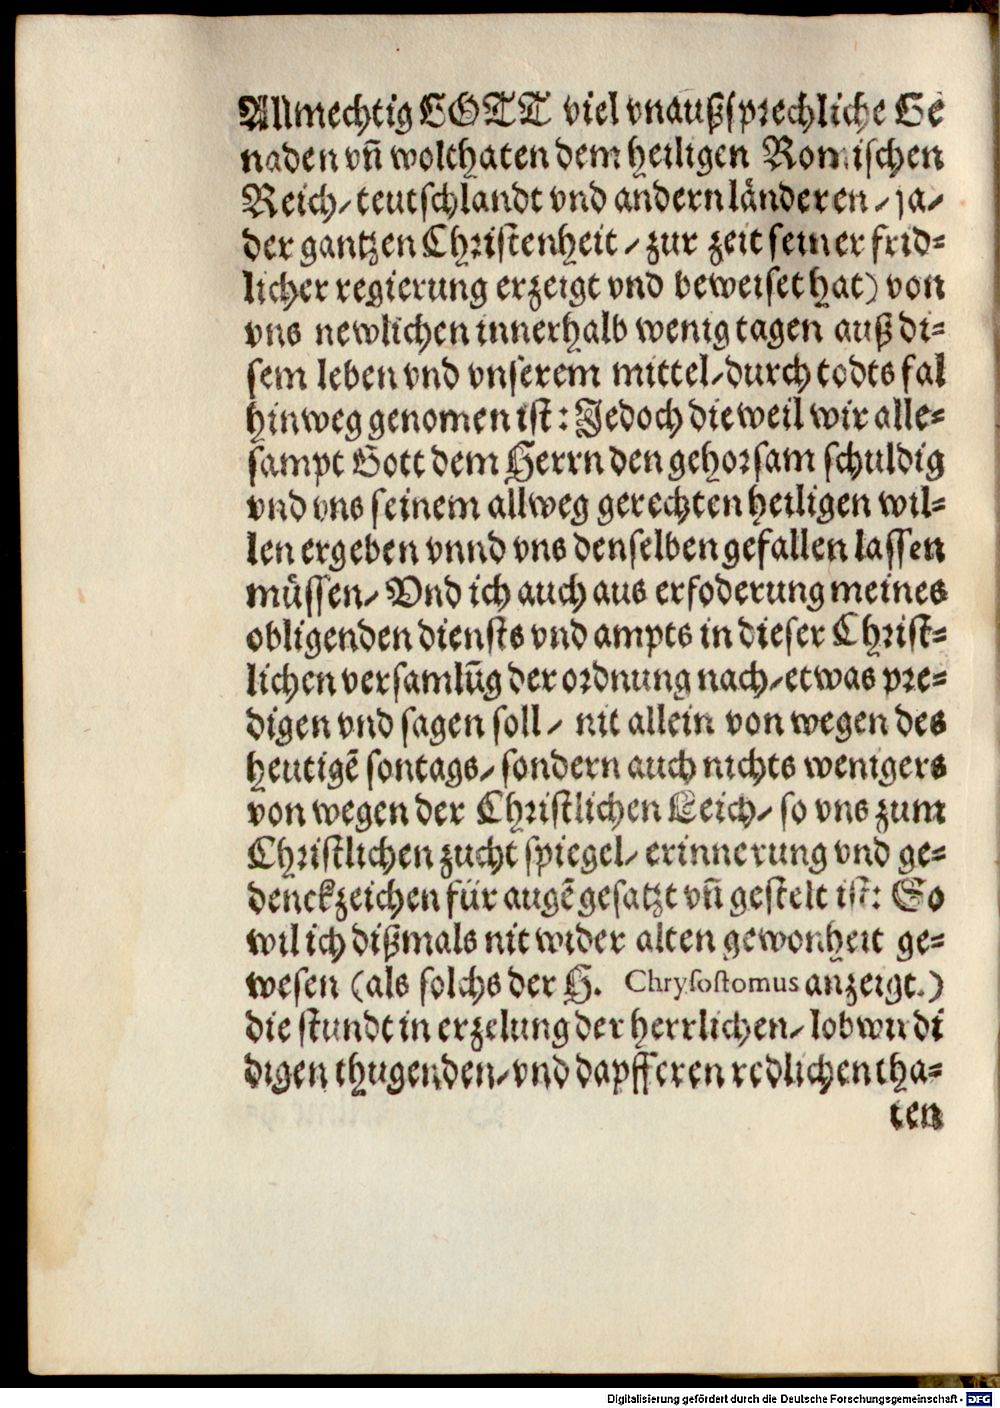 Allmechtig GOTT viel vnaußsprechliche Ge
naden vñ wolthaten dem heiligen Romischen
Reich/ teutschlandt vnd andern länderen / ja/
der gantzen Christenheit / zur zeit seiner frid-
licher regierung erzeigt vnd beweiset hat) von
vns newlichen innerhalb wenig tagen auß di-
sem leben vnd vnserem mittel/ durch todts fal
hinweg genomen ist: Jedoch dieweil wir alle-
sampt Gott dem Herrn den gehorsam schuldig
vnd vns seinem allweg gerechten heiligen wil-
len ergeben vnnd vns denselben gefallen lassen
müssen/ Vnd ich auch aus erfoderung meines
obligenden diensts vnd ampts in dieser Christ-
lichen versamlũg der ordnung nach/ etwas pre-
digen vnd sagen soll / nit allein von wegen des
heutigẽ sontags/ sondern auch nichts wenigers
von wegen der Christlichen Leich/ so vns zum
Christlichen zucht spiegel/ erinnerung vnd ge-
denckzeichen für augẽ gesatzt vñ gestelt ist: So
wil ich dißmals nit wider alten gewonheit ge-
wesen (als solchs der H. Chrysostomus anzeigt.)
die stundt in erzelung der herrlichen/ lobwirdi
digen thugenden/ vnd dapfferen redlichen tha-
ten
Digitalisierung gefördert durch die Deutsche Forschungsgemeinschaft - DFG